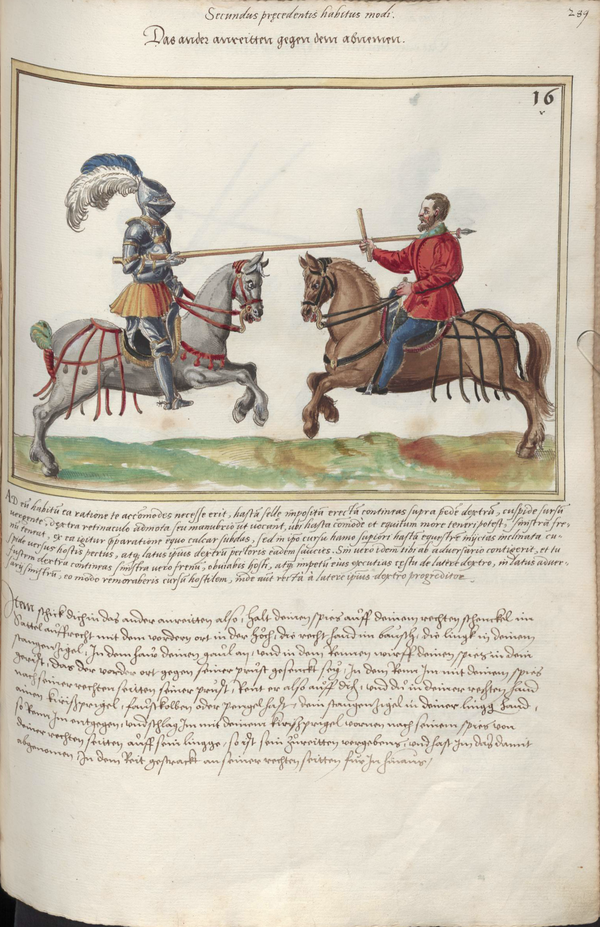 Secundus præcedentis habitus modi.
289
Das ander anreitten gegen dem abnemen.
16
AD eũ habitũ ea ratione te accõmodes necesse erit, hastã sellę impositã erectã contineas supra pede dextrũ, cuspide sursũ
vergente, dextra retinaculo admota seu manubrio ut vocant, ubi hasta cõmode et equitum more teneri potest, sinistra fre,
nũ teneat, ex ea igitur ꝓparatione equo calcar subdas, sed in ipo cursu hamo superiori hastã equestrẽ inijcias inclinata cu,
spide versus hostis pectus, atq latus ipsius dextrũ pectoris eadem saucies. Sin vero idem tibi ab adversario contigerit, et tu
dextra contineas sinistra vero frenũ, obviabis hosti, atq impetũ eius excutias cęstu de latere dextro, in latus adver,
sarij sinistrũ, eo modo remoraberis cursũ hostilem, inde aut rectà à latere ipsius dextro progreditor.
Item schick dich in das ander anreitten also, halt deinen spies auff deinem rechten schenckel im
Sattel auffrecht mit dem vordern ort in der höch, die recht hand im bausch, die lingk in deinem
stangenzigel, Indem haw deinen gaul an, und in dem Rennen wirff deinen spies in dem
gerüst, das der vorder ort gegen seiner prust gesenckt sey, In dem Renn Im mit deinem spies
nach seiner rechten seitten seiner prust, Rent er also auff dich, und du in deiner rechten hand
einen kirißprigel, faustkolben oder pengel hast, dein stangenzigel in deiner lingg hand,
so Renn Im entgegen, und schlag Im mit deinem kirißprigel vornen nach seinem spies von
deiner rechten seitten auff sein lingge, so ist sein zureitten vergebens, und hast Im das damit
abgenomen In dem Reit gestrackt an seiner rechten seitten für In hinaus,